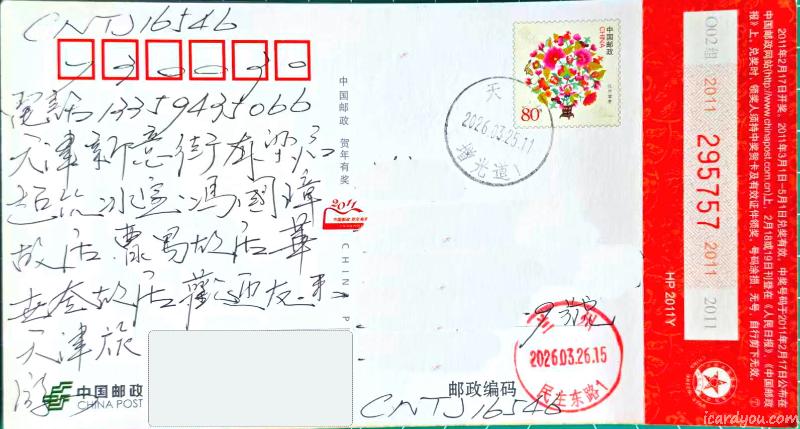 CNTJ16546
300030
電話13359435066
天津新意街有梁启
超飲冰室.馮國璋
故居.曹禺故居華
世奎故居歡迎友来
天津旅
游
中国邮政
CHINA POST
中国邮政 贺年有奖
2011
CHINA P
中国邮政
CHINA
80分
天
2026.03.25.11
增光道1
兰州
2026.03.26.15
民主东路1
邮政编码
CNTJ16546
002组 2011 295757 2011 2011
HP 2011Y
2011年2月17日开奖，2011年3月1日—5月1日兑奖有效。中奖号码于2011年2月17日公布在
中国邮政网(http://www.chinapost.com.cn)上，2月18或19日刊登在《人民日报》、《中国邮政
报》上。兑奖时，领奖人须持中奖贺卡及有效证件领奖，号码涂损 无号，自行剪下无效。
icardyou.com